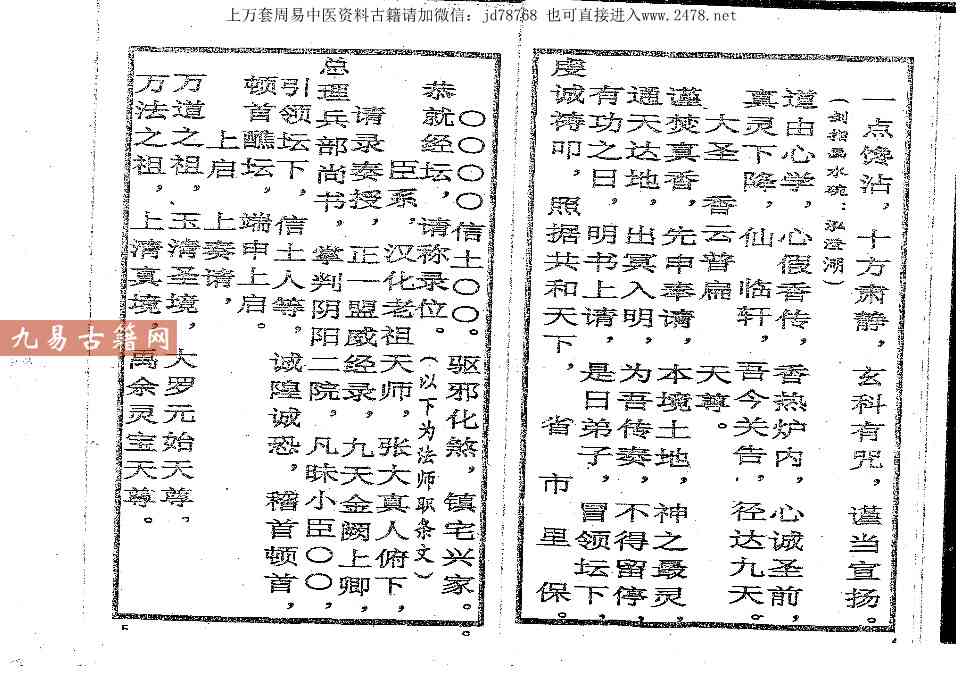 上万套周易中医资料古籍请加微信：jd78768 也可直接进入www.2478.net
一点馋沾，十方肃静，玄科有咒，谨当宣扬。
道由心学，心假香传，香热炉内，心诚圣前，
真灵下降，仙　临轩，吾今关告，径达九天。
大圣　香云普扁　天尊。
谨焚真香，先申奉请，本境土地，神之最灵，
通天达地，出冥入明，为吾传奏，不得留停，
有功之日，明书上请，是日弟子，冒领坛下，
虔诚祷叩，照据共和天下，　省　市　里　保。
〇〇〇〇信士〇〇。驱邪化煞，镇宅兴家。
恭就经坛，请称录位。（以下为法师职条文）
臣系，汉化老祖天师，张大真人俯下，
请录奏授，正一盟威经录，九天金阙上卿，
总理兵部尚书，掌判阴阳二院，凡昧小臣〇〇，
引领坛下，信士人等，诚隍诚恐，稽首顿首，
顿首醮坛，端申上启。
上启　上奏请，
万道之祖，玉清圣境，大罗元始天尊，
万法之祖，上清真境，禹余灵宝天尊。
九易古籍网